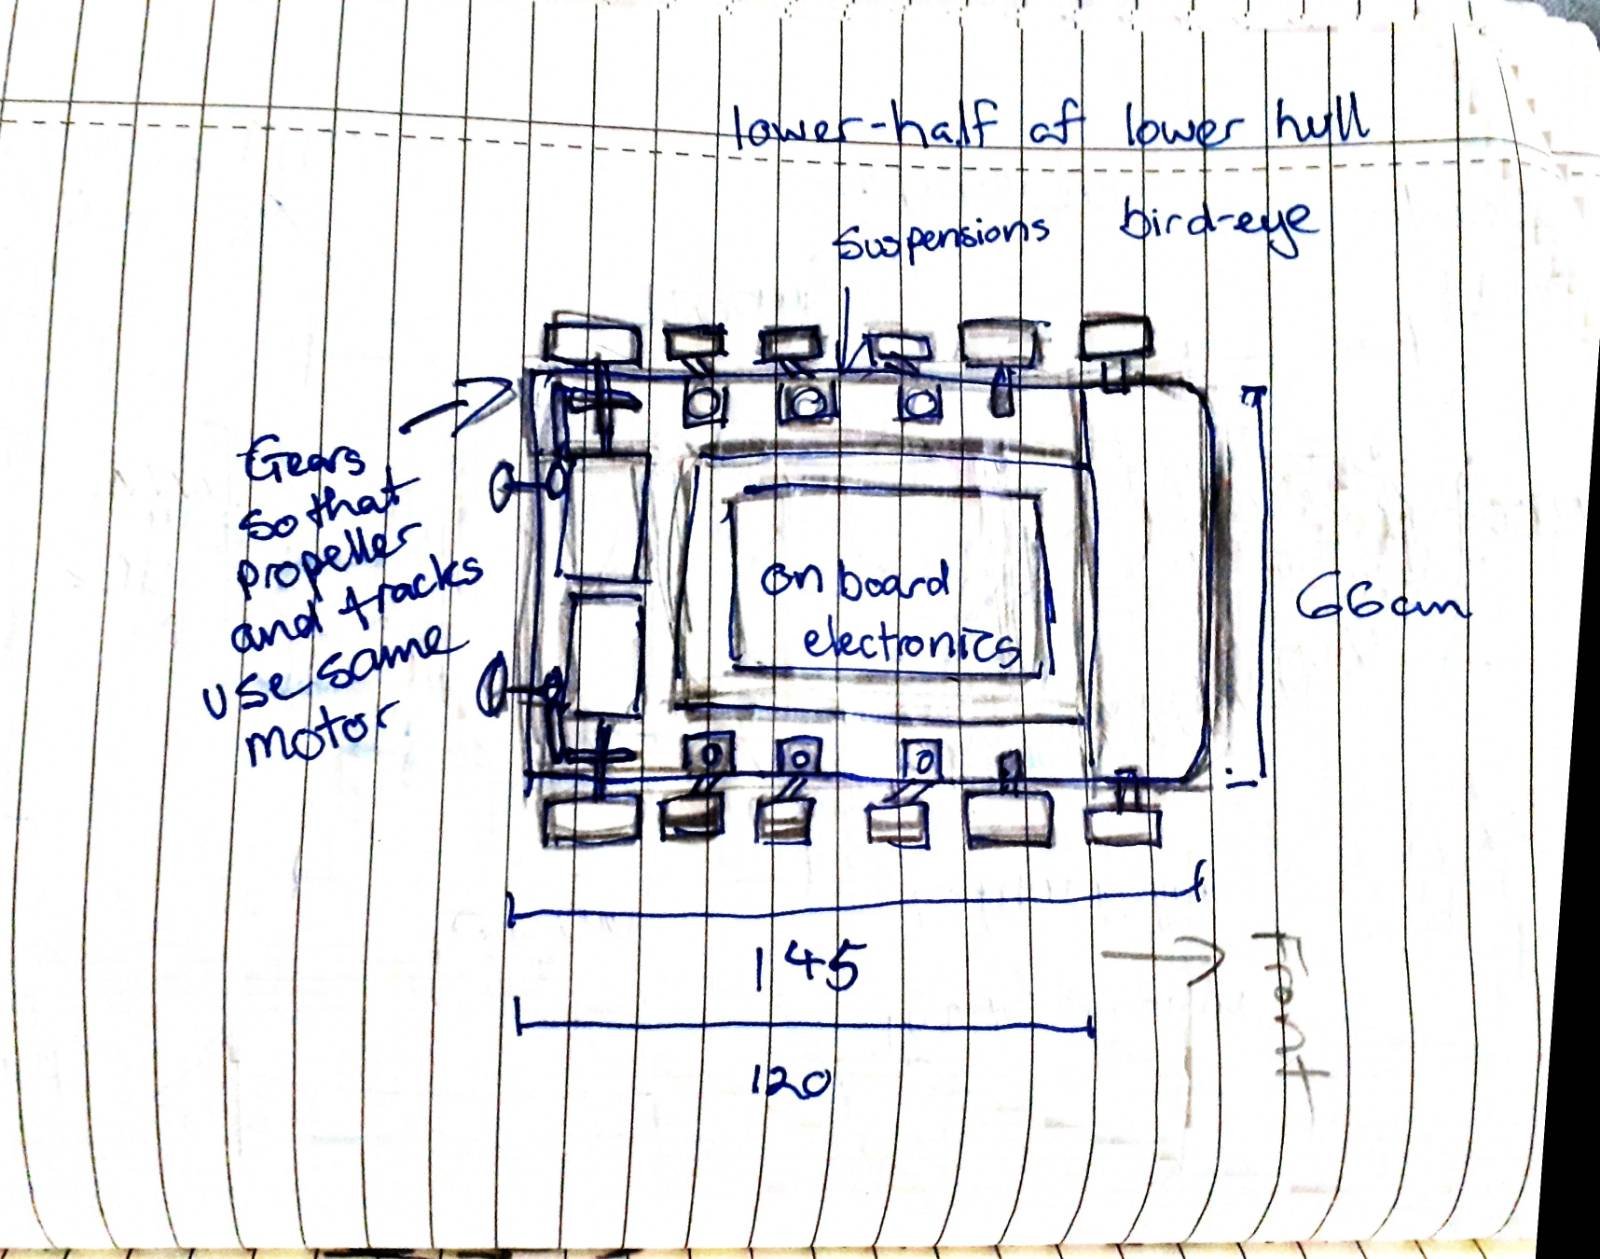 lower-half of lower hull
bird-eye
Suspensions
Gears
so that
propeller
and tracks
use same
motor
on board
electronics
66cm
145
120
Front